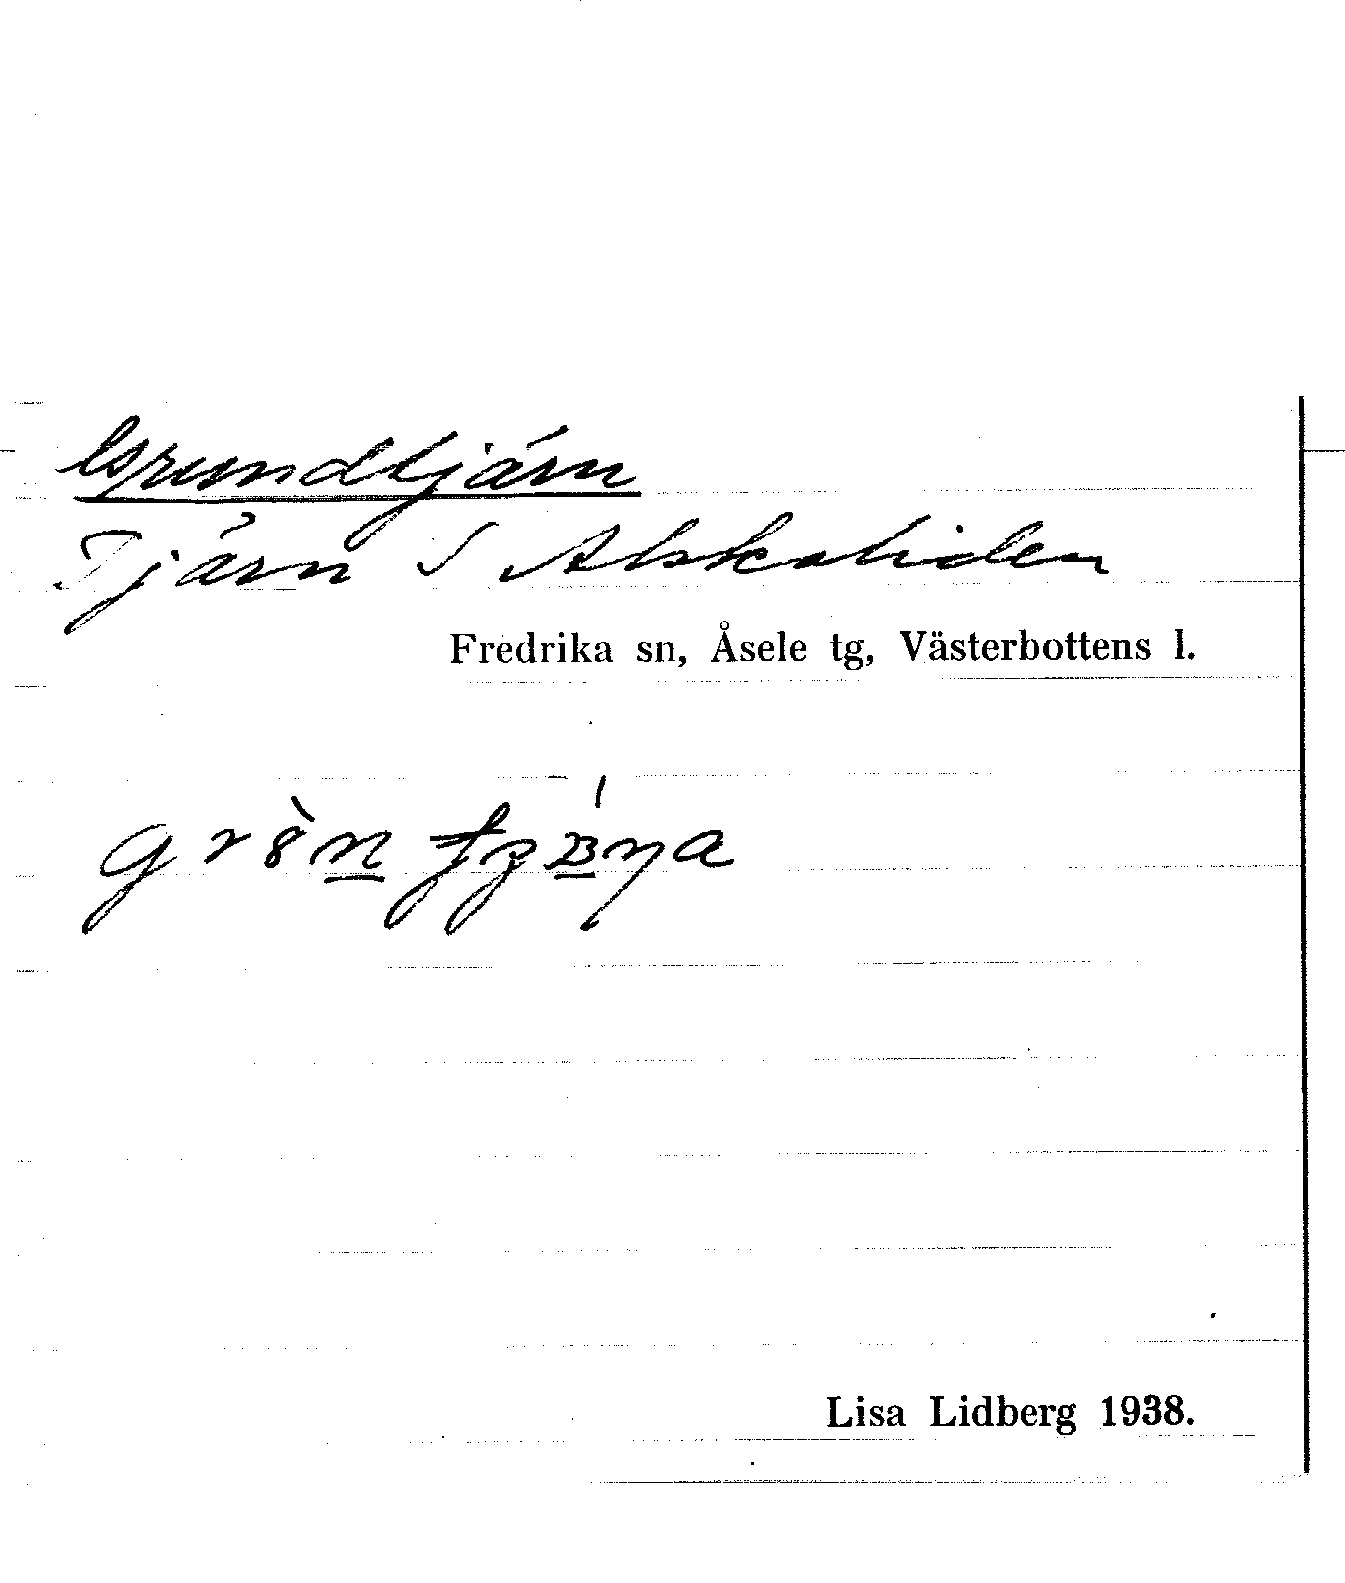 Grundtjärn
Tjärn S Alskaliden
Fredrika sn, Åsele tg, Västerbottens l.
Lisa Lidberg 1938.